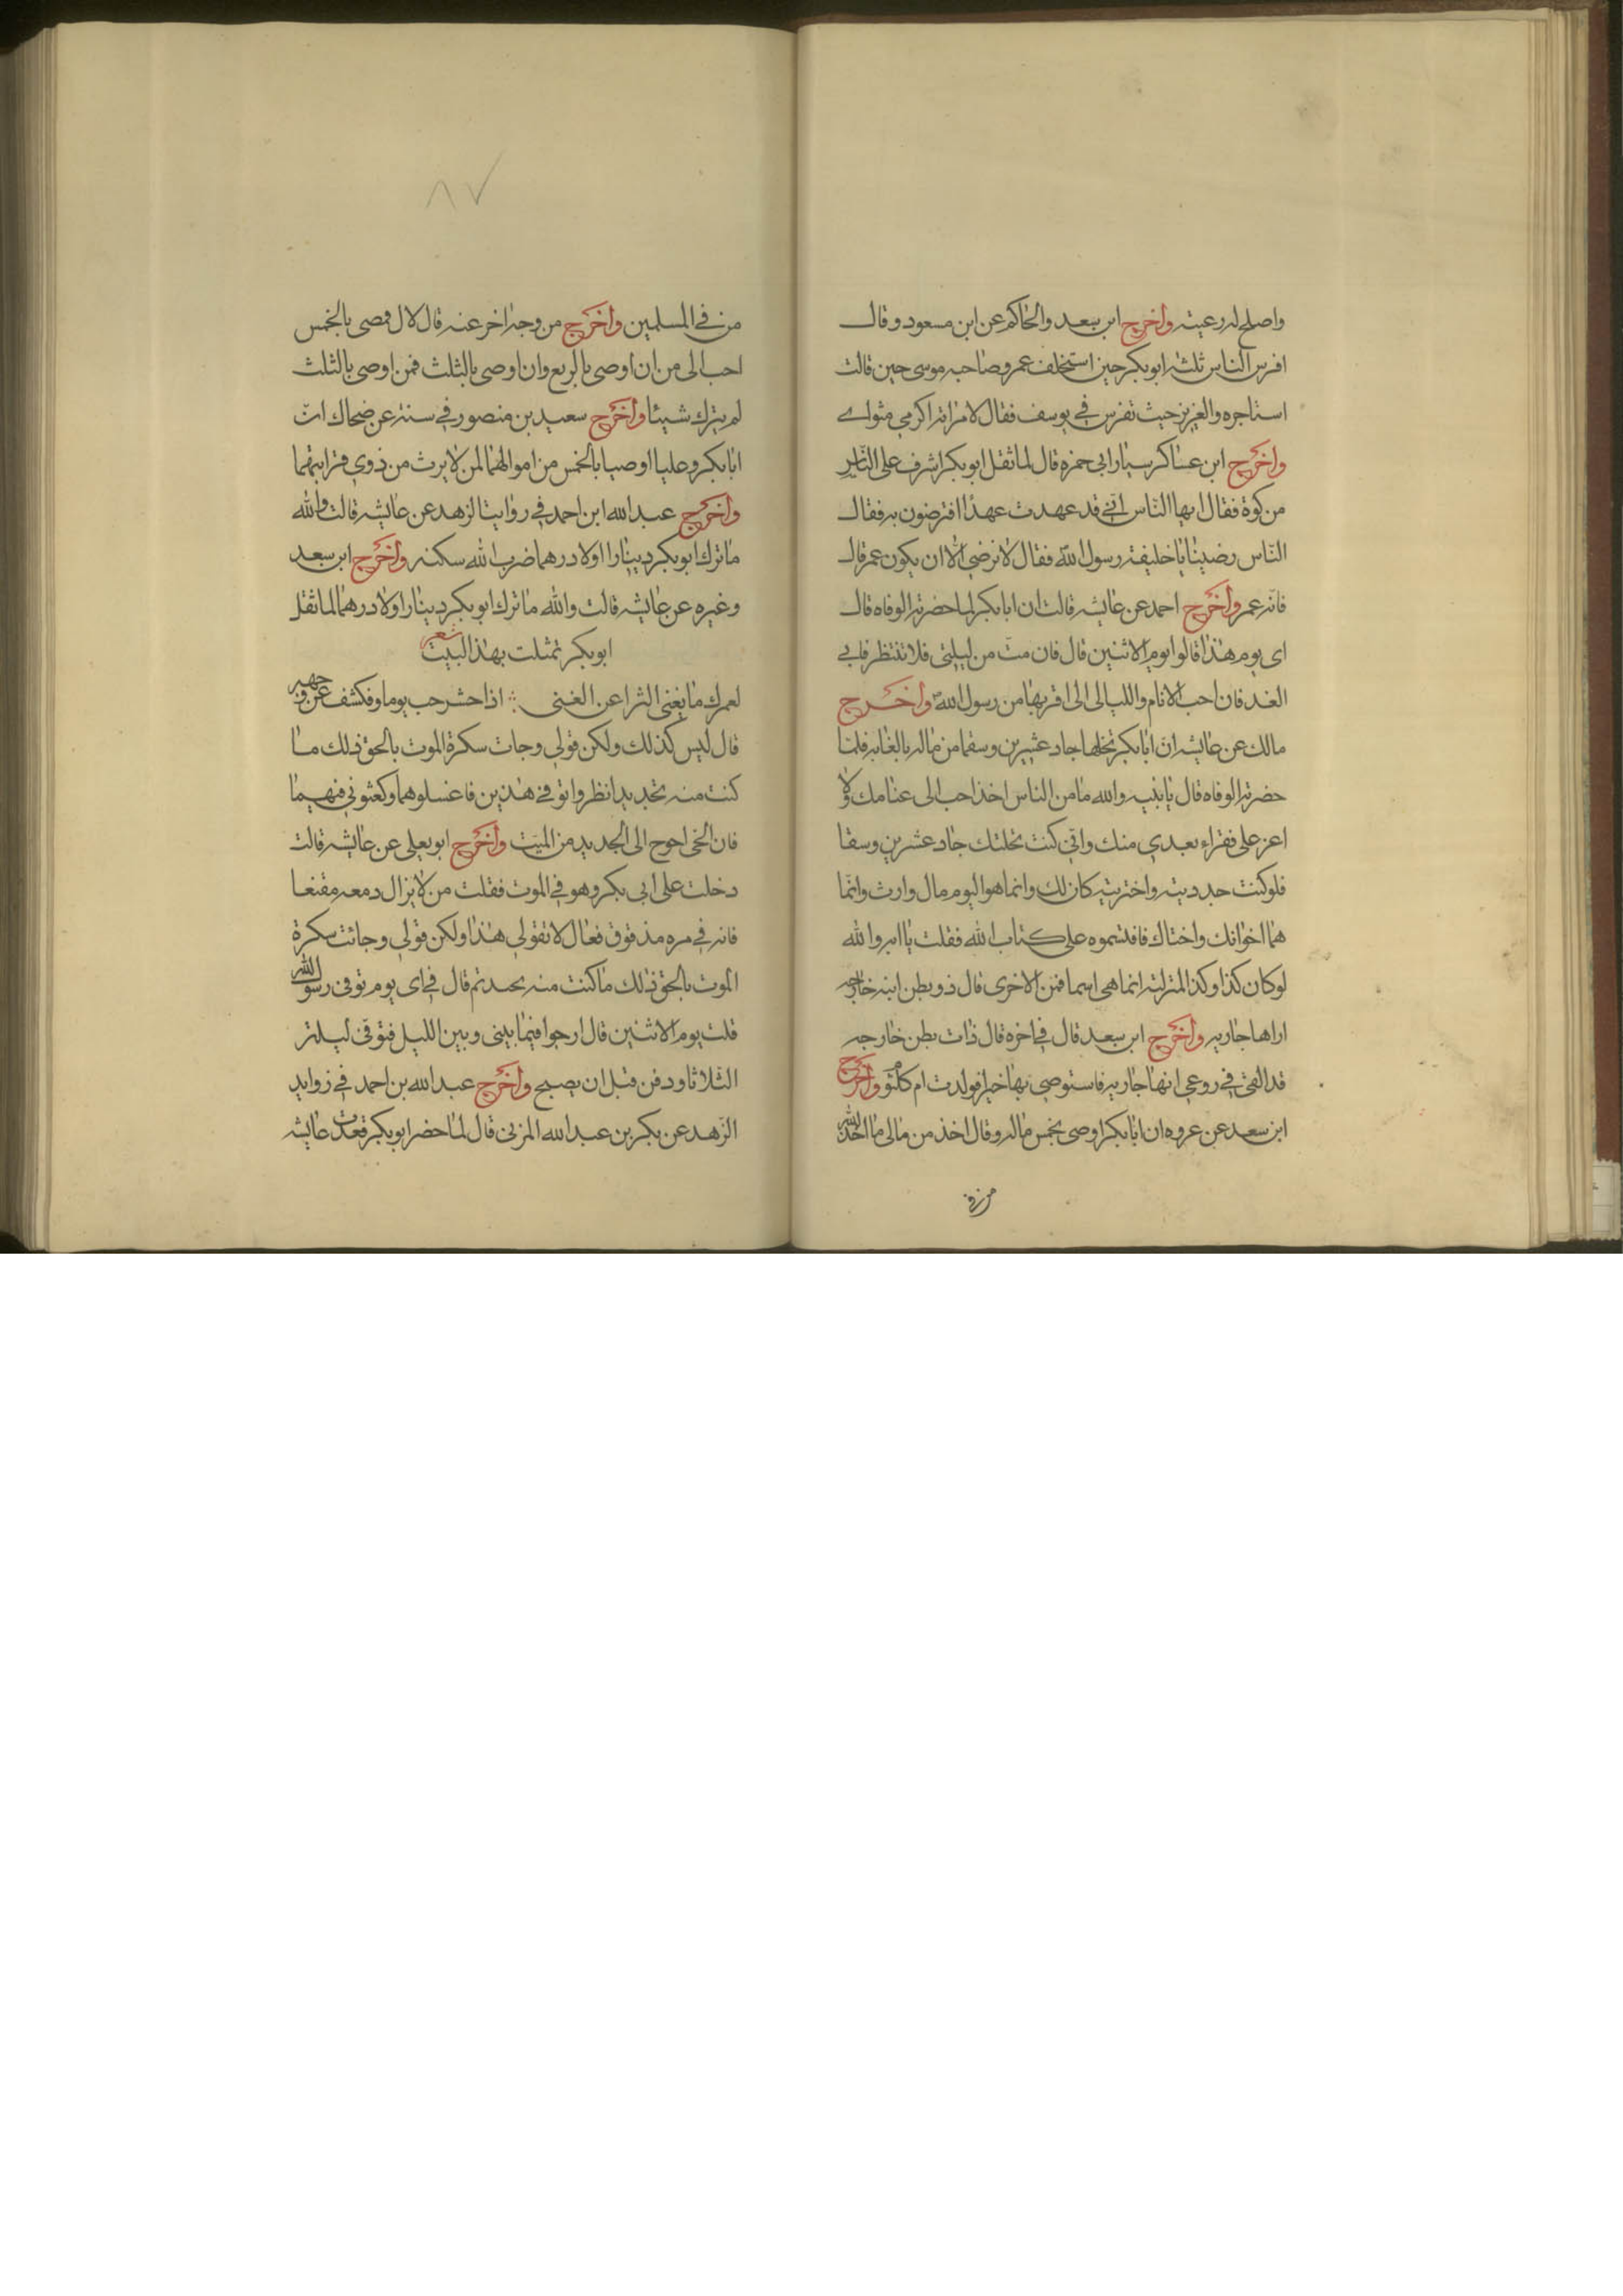 واصلح له رعيته واخرج ابن سعد والحاكم عن ابن مسعود وقال
افرس الناس ثلثه ابوبكر حين استخلف عمر وصاحبه موسى حين قالت
استاجره والعزيز حيث تفرس في يوسف فقال لامراته اكرمي مثواے
واخرج ابن عساكر سيار ابى حمزه قال لما ثقل ابوبكر اشرف على النّاس
من كوة فقال ايها النّاس انّي قد عهدت عهدًا افترضون به فقال
النّاس رضينا يا خليفة رسول اللّه فقال لا نرضي الا ان يكون عمر قال
فانّه عمر واخرج احمد عن عايشه قالت ان ابا بكر لما حضرته الوفاه قال
اى يوم هذا قالوا يوم الاثنين قال فان متّ من ليلتى فلا تنتظر فاي
الغد فان احب الانام والليالى الى اقربها من رسول الله واخرج
مالك عن عايشه انّ ابا بكر نخلها جاد عشرين وسقا من ماله بالغابه فلمّا
حضرته الوفاه قال يا بنيه والله ما من الناس احذ احب الى غنا منك ولا
اعز على فقراء بعدي منك واني كنت نحلتك جاد عشرين وسقا
فلو كنت جدديته واخترتيه كان لك وانما هو اليوم مال وارث وانّما
هما اخوانك واختاك فاقتسموه على كتاب الله فقلت يا ابه والله
لو كان كذا وكذا لتركته انما هى اسما فمن الاخرى قال ذو بطن ابنه خارجه
اراها جاريه واخرج ابن سعد قال في اخره قال ذات بطن خارجه
قد القى في روعي انها جاريه فاستوصي بها خيرا فولدت ام كلثوم واخرج
ابن سعد عن عروه ان ابا بكر اوصى بخمس ماله وقال اخذ من مالى ما اخذ الله
من في
٨٧
من في المسلمين واخرج من وجه اخر عنه قال لال فصى بالخمس
احب الى من ان اوصى بالربع وان اوصى بالثلث فمن اوصى بالثلث
لم يترك شيئا واخرج سعيد بن منصور في سننه عن ضحاك انّ
ابا بكر وعليا اوصيا بالخمس من اموالهما لمن لا يرث من ذوي قرابتهما
واخرج عبد الله ابن احمد في روايت الزهد عن عايشه قالت والله
ما ترك ابوبكر دينارا اولا درهما ضرب الله سكنه واخرج ابن سعد
وغيره عن عايشه قالت والله ما ترك ابوبكر دينارا ولا درهما لما ثقل
ابوبكر تمثلت بهذا البيت شعر
لعمرك ما يغنى الثرا عن الغنى ∴ اذا حشرحب يوما وفكشف عن وجهه
قال ليس كذلك ولكن قولي وجات سكرة الموت بالحق ذلك ما
كنت منه تحديد انظروا ثوفي هذين فاغسلوهما وكفنوني فيهما
فان الحى احوج الى الجديد من الميّت واخرج ابو يعلى عن عايشه قالت
دخلت على ابى بكر وهو في الموت فقلت من لا يزال دمعه مقنعا
فانه في مره مذفوق فقال لا تقولي هذا ولكن قولي وجائت سكرة
الموت بالحق ذلك ما كنت منه بحد ثم قال في اى يوم توفى رسول الله
قلت يوم الاثنين قال ارجوا فيما بينى وبين الليل فتوفّى ليلة
الثلاثا ودفن قبل ان يصبح واخرج عبد الله بن احمد في زوايد
الزّهد عن بكر بن عبد الله المزنى قال لما حضر ابوبكر قعدت عايشه